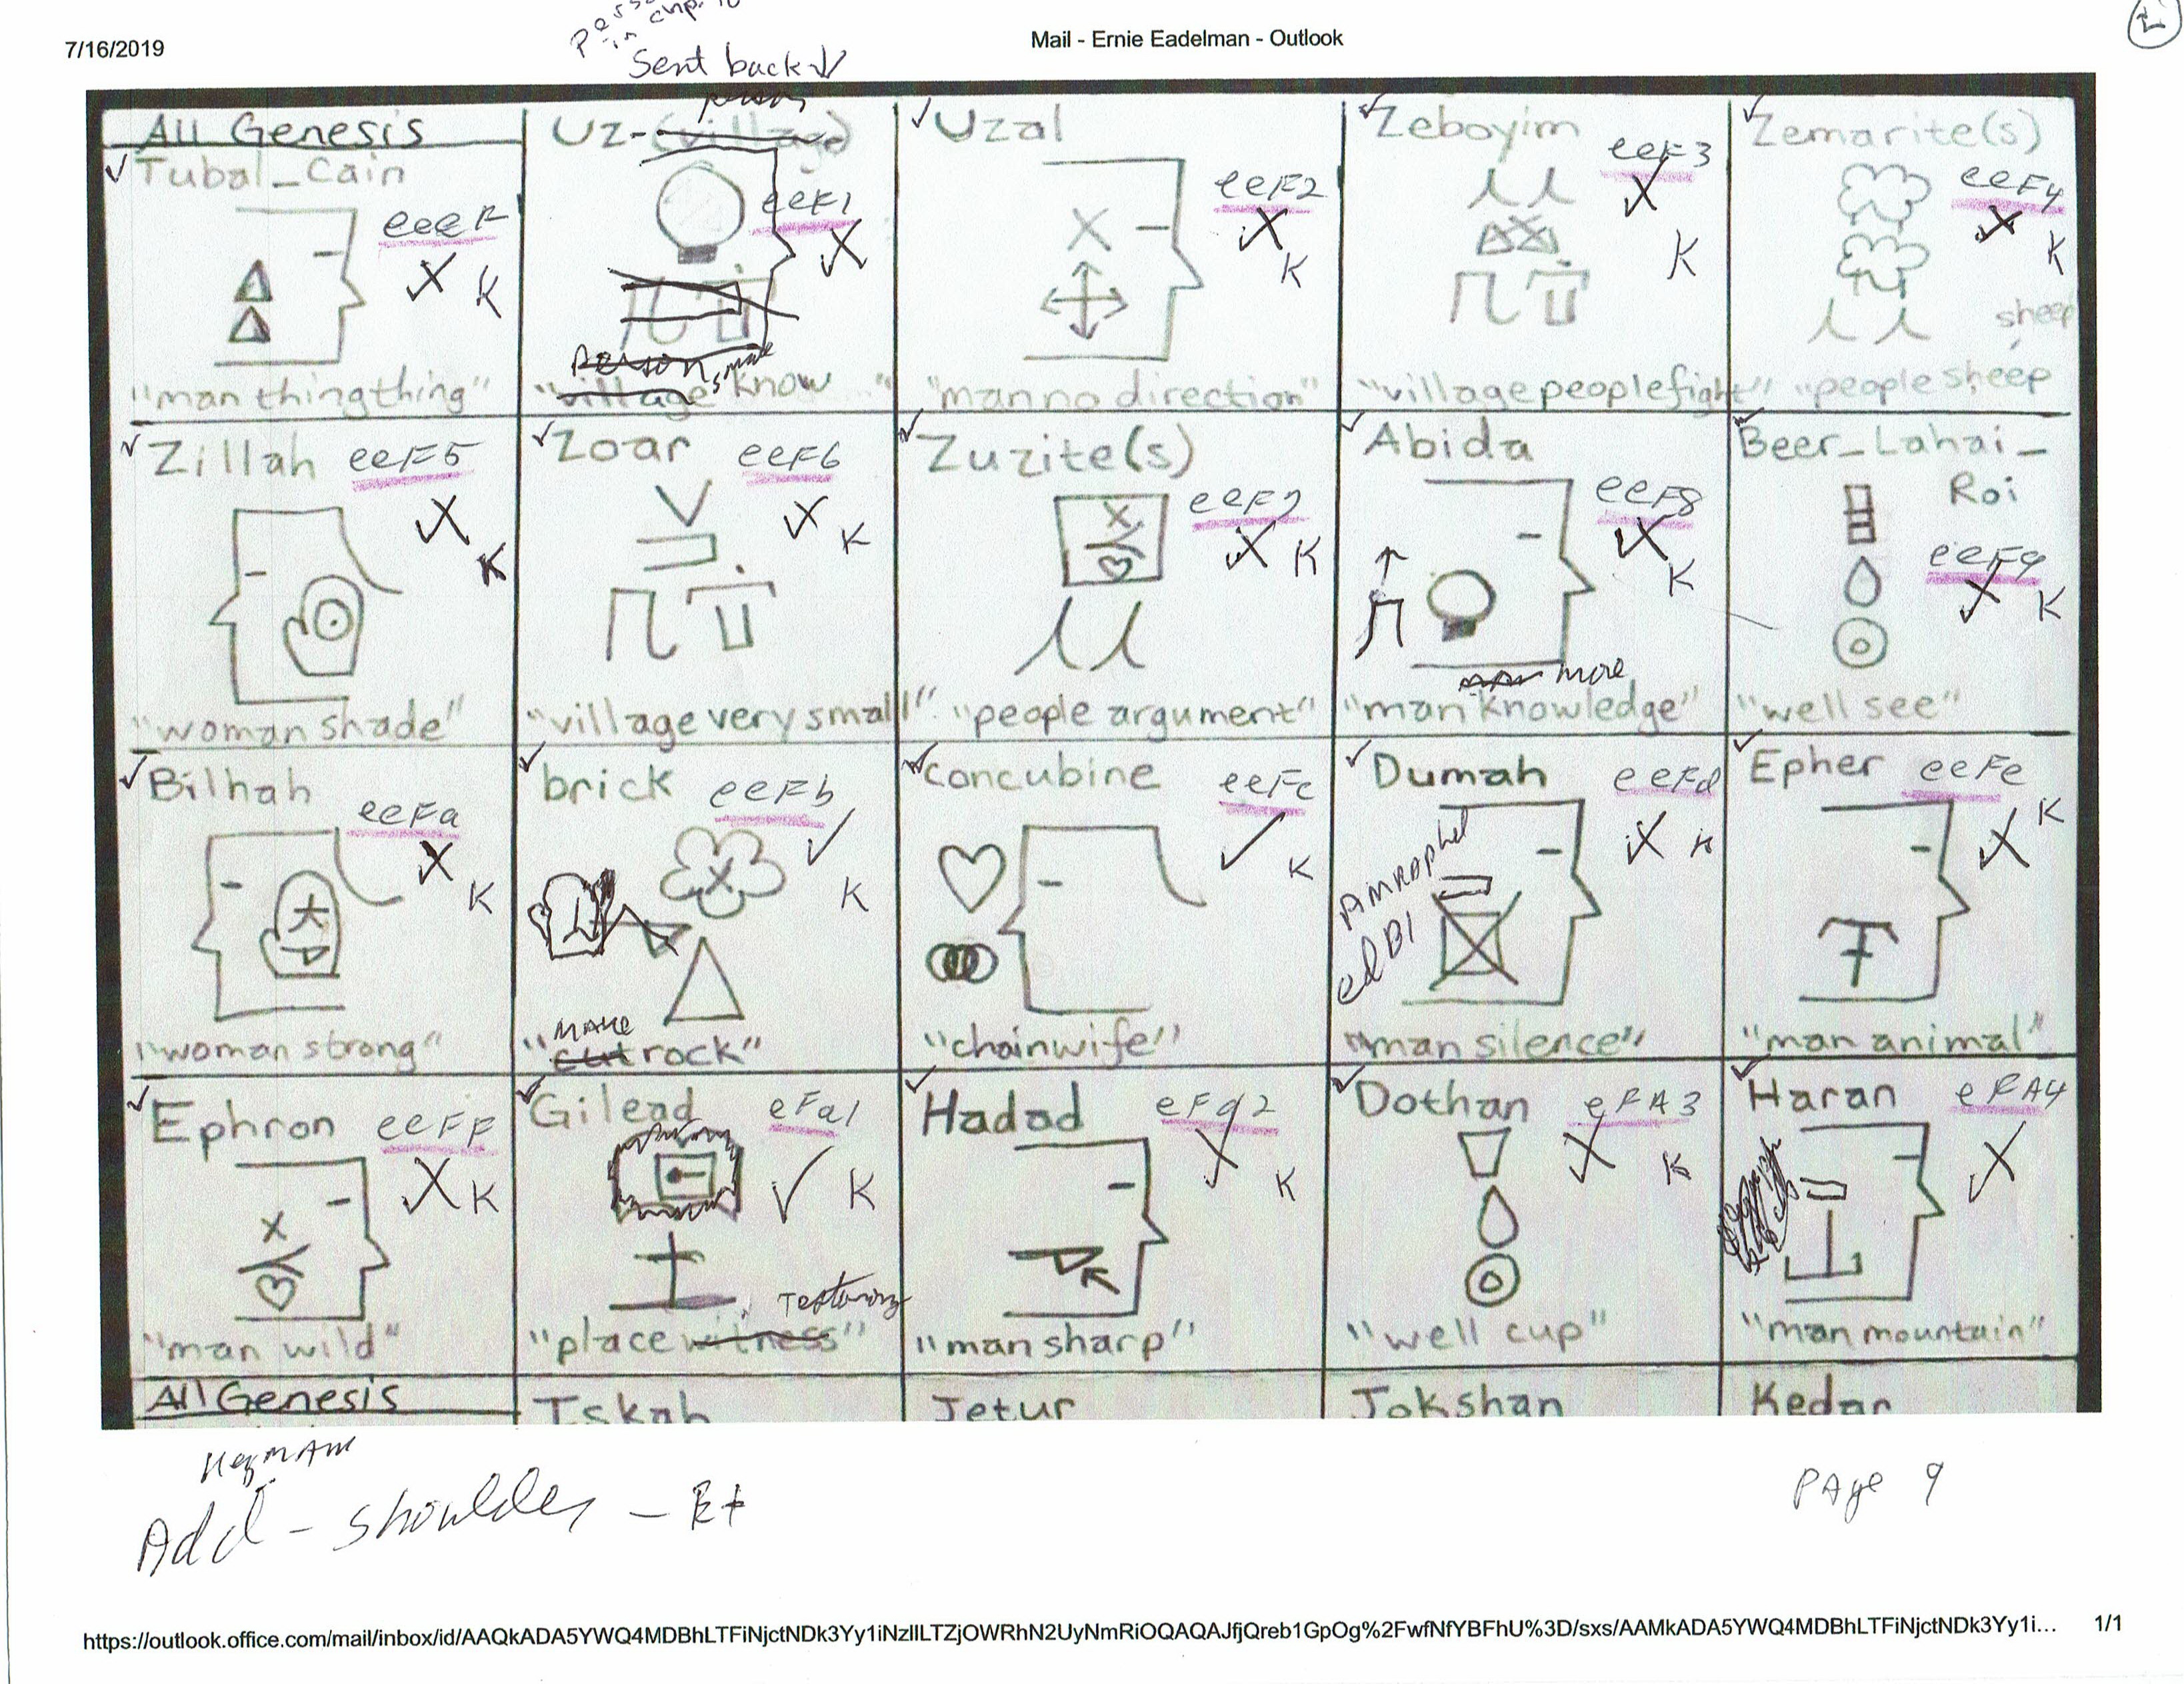 7/16/2019
Mail - Ernie Eadelman - Outlook
in chp. 10
Sent back ↓
All Genesis
Tubal_Cain
eeeF
X K
"man thingthing"
person
Uz-(village)
eeF1
X
Person, smart
"village know"
Uzal
eeF2
X
K
"man no direction"
Zeboyim
eeF3
X
K
"village people fight"
Zemarite(s)
eeF4
X
K
sheep
"people sheep
Zillah eeF5
X
K
"woman shade"
Zoar eeF6
X
K
"village very small"
Zuzite(s)
eeF7
X K
"people argument"
Abida
eeF8
X
K
man more
"man knowledge"
Beer_Lahai_
Roi
eeF9
X K
"well see"
Bilhah
eeFa
X
K
"woman strong"
brick eeFb
K
make
"cut rock"
concubine
eeFc
K
"chainwife"
Dumah eeFd
X K
Amraphel
edB1
"man silence"
Epher eeFe
K
X
"man animal"
Ephron eeFF
X K
"man wild"
Gilead eFa1
K
Testimony
"place witness"
Hadad eFa2
X
K
"man sharp"
Dothan eFA3
X
K
"well cup"
Haran eFA4
X
"man mountain"
All Genesis
Iskah
Jetur
Jokshan
Kedar
Add - shoulder -
Page 9
https://outlook.office.com/mail/inbox/id/AAQkADA5YWQ4MDBhLTFiNjctNDk3Yy1iNzllLTZjOWRhN2UyNmRiOQAQAJfjQreb1GpOg%2FwfNfYBFhU%3D/sxs/AAMkADA5YWQ4MDBhLTFiNjctNDk3Yy1i... 1/1